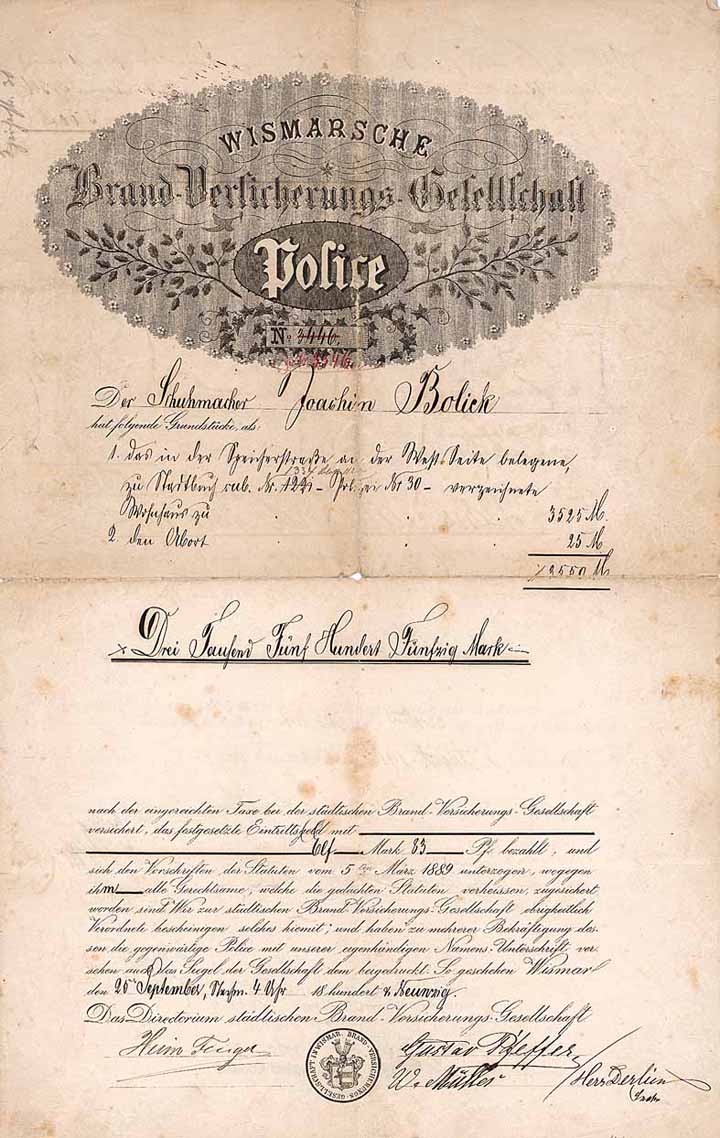 WISMARSCHE
Brand-Versicherungs-Gesellschaft
Police
No. 3446.
Der Schuhmacher Joachim Bolick
hat folgende Grundstücke, als:
1. das in der Speicherstraße an der West Seite belegene,
zu Stadtbuch sub. Nr. 1221- Polizei Nr 30 - verzeichnete
Wohnhaus zu . . . 3525 M.
2. den Abort . . . 25 M.
3550 M
Drei Tausend Fünf Hundert Fünfzig Mark
nach der eingereichten Taxe bei der städtischen Brand-Versicherungs-Gesellschaft
versichert, das festgesetzte Eintrittsgeld mit
Elf Mark 83 Pf. bezahlt, und
sich den Vorschriften der Statuten vom 5ten März 1889 unterzogen, wogegen
ihm alle Gerechtsame, welche die gedachten Statuten verheissen, zugesichert
worden sind. Wir zur städtischen Brand-Versicherungs-Gesellschaft obrigkeitlich
Verordnete bescheinigen solches hiemit; und haben zu mehrerer Bekräftigung des-
sen die gegenwärtige Police mit unserer eigenhändigen Namens-Unterschrift ver-
sehen auch das Siegel der Gesellschaft dem beigedruckt. So geschehen Wismar
den 26 September, Nachm. 4 Uhr 18 hundert & Neunzig.
Das Directorium städtischen Brand-Versicherungs-Gesellschaft
Gustav Pfeffer
W. Müller
BRAND VERSICHERUNGS-GESELLSCHAFT IN WISMAR